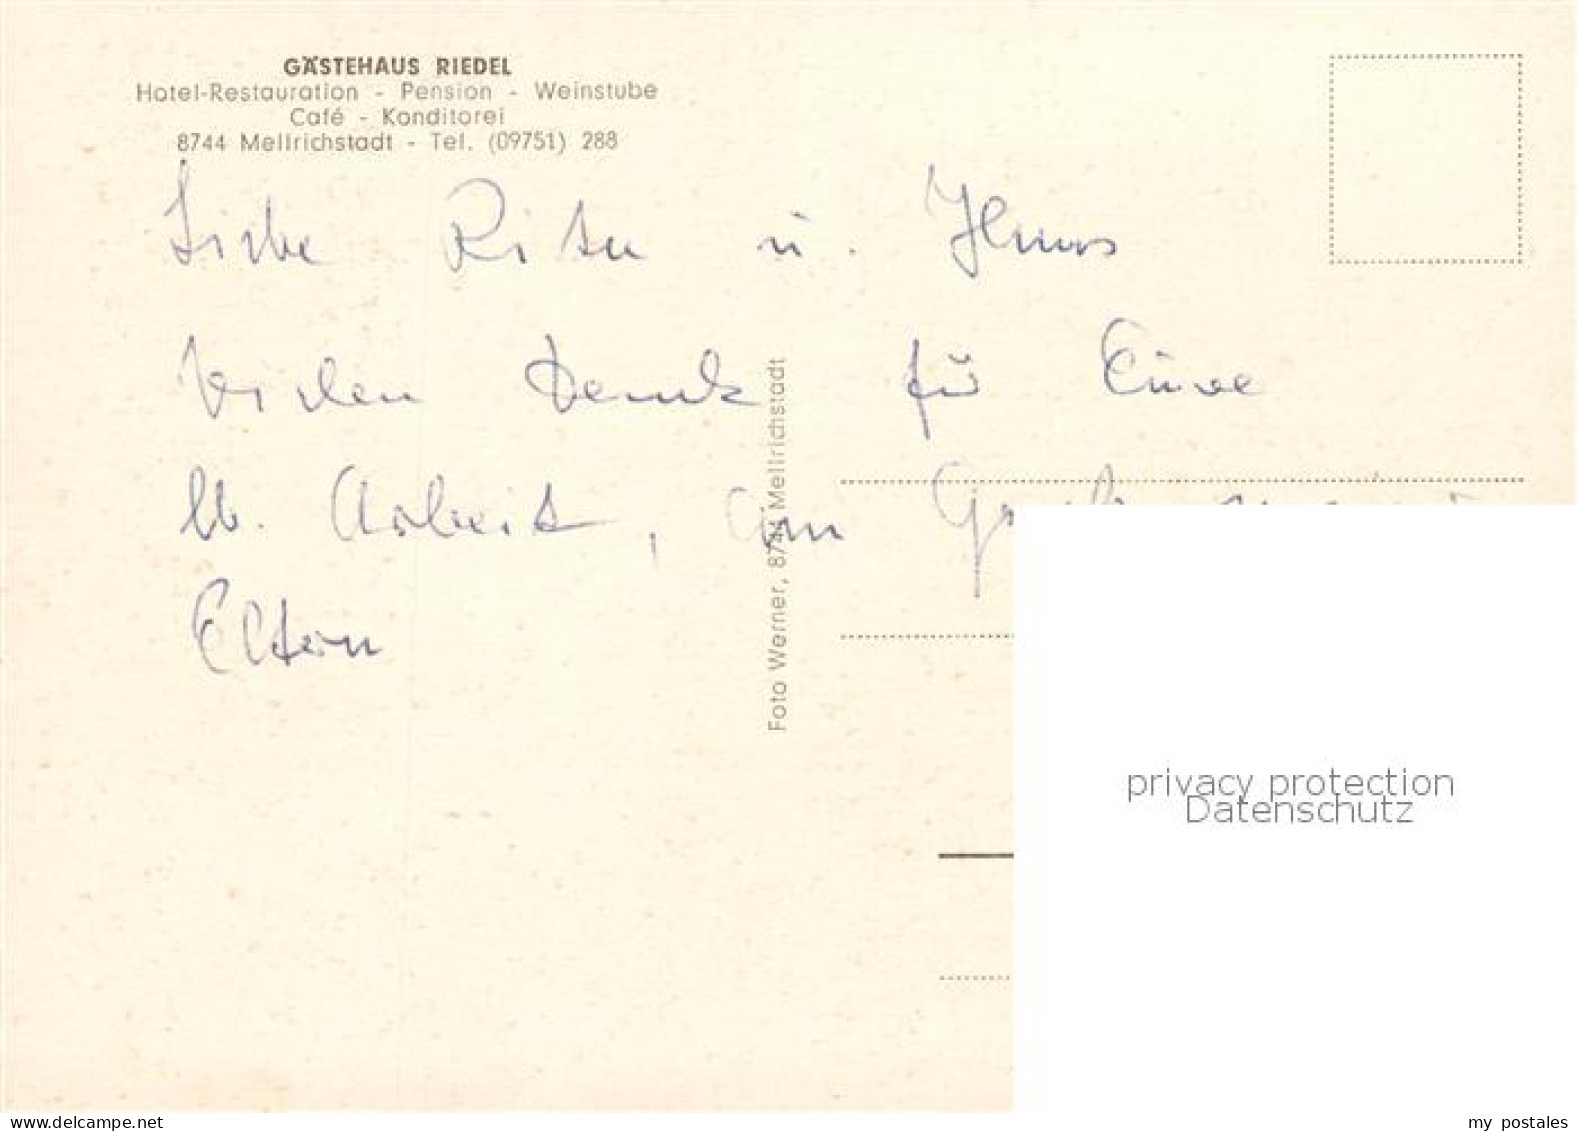 GÄSTEHAUS RIEDEL
Hotel-Restauration - Pension - Weinstube
Café - Konditorei
8744 Mellrichstadt - Tel. (09751) 288
Liebe Rita u. Hans
Vielen Dank für Eure
lb. Arbeit, am
Eltern
Foto Werner, 8744 Mellrichstadt
privacy protection
Datenschutz
www.delcampe.net
my postales